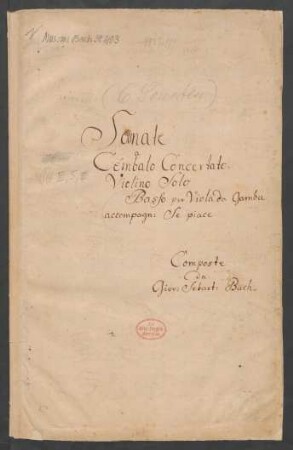 Mus. ms. Bach St 463
Sonate
â
Cembalo Concertato.
Violino Solo
Basso per Viola da Gamba
accompagni Se piace
Composte
da
Giov: Sebast: Bach.